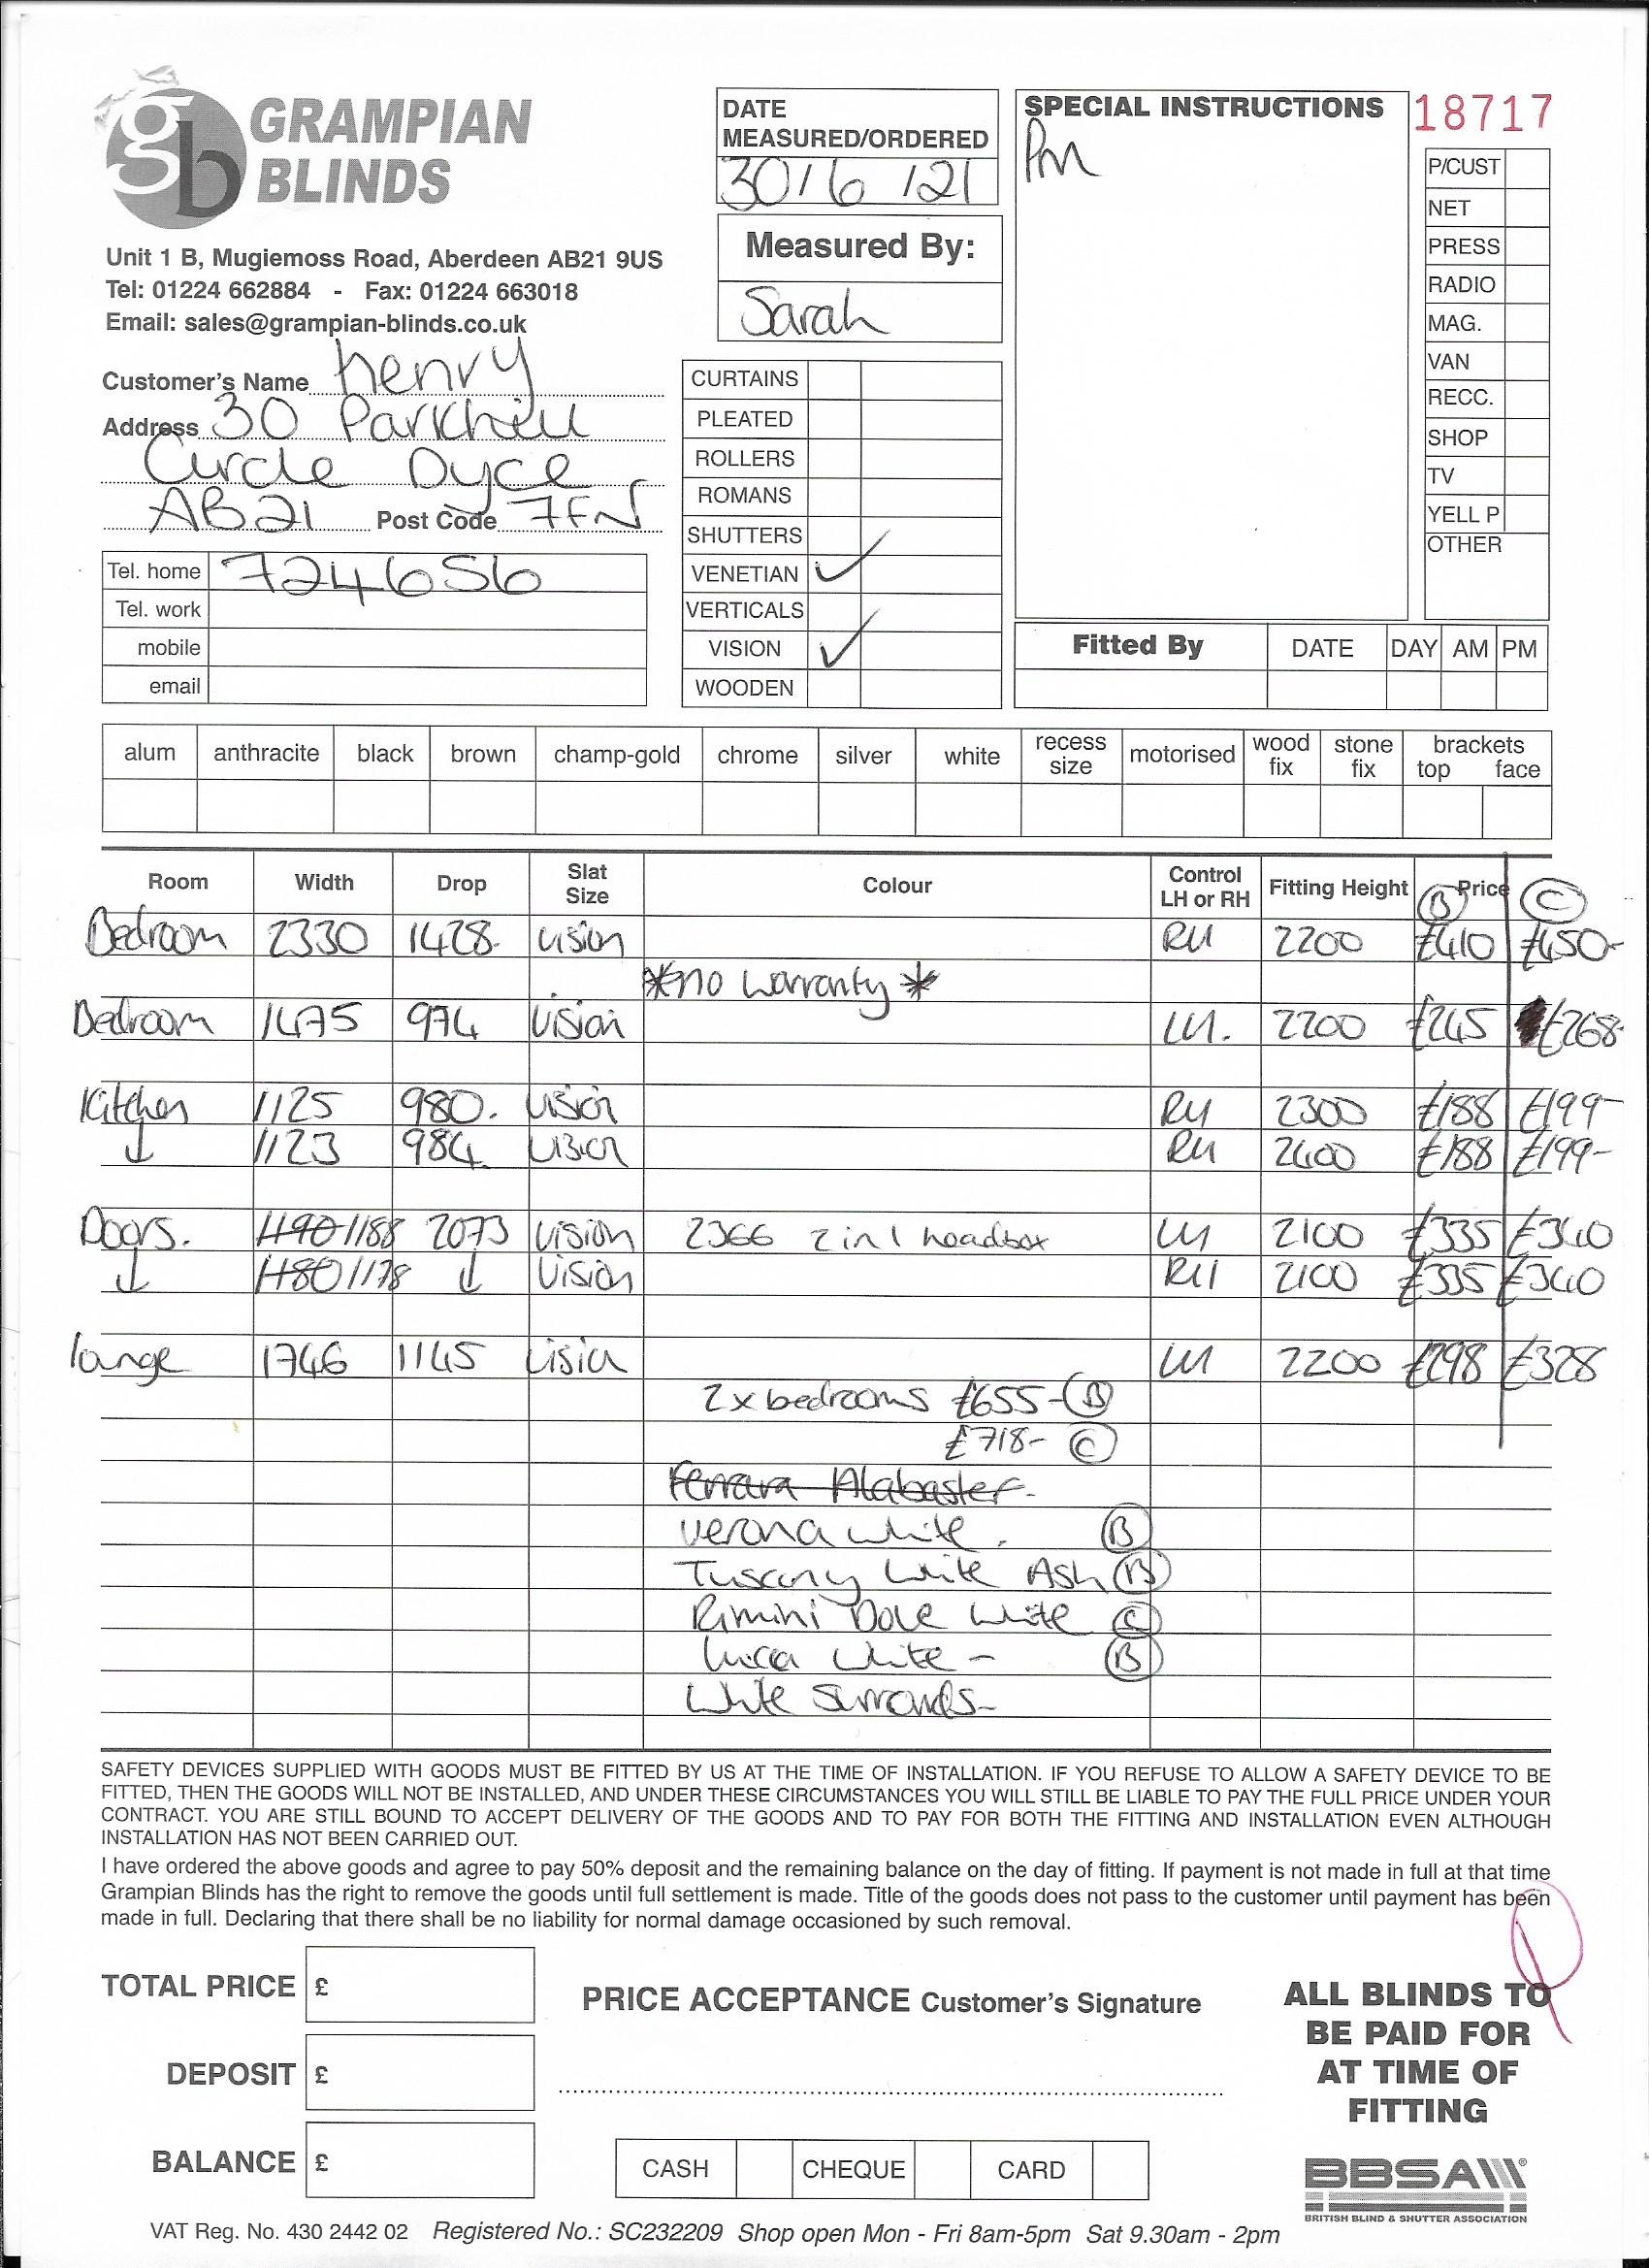 gb GRAMPIAN
BLINDS
Unit 1 B, Mugiemoss Road, Aberdeen AB21 9US
Tel: 01224 662884 - Fax: 01224 663018
Email: sales@grampian-blinds.co.uk
Customer's Name Henry
Address 30 Parkhill
Circle Dyce
AB21 Post Code 7FN
Tel. home 724656
Tel. work
mobile
email
DATE
MEASURED/ORDERED
30/6/21
Measured By:
Sarah
CURTAINS
PLEATED
ROLLERS
ROMANS
SHUTTERS
VENETIAN ✓
VERTICALS
VISION ✓
WOODEN
SPECIAL INSTRUCTIONS
Pm
18717
P/CUST
NET
PRESS
RADIO
MAG.
VAN
RECC.
SHOP
TV
YELL P
OTHER
Fitted By DATE DAY AM PM
alum anthracite black brown champ-gold chrome silver white recess size motorised wood fix stone fix brackets top face
Room Width Drop Slat Size Colour Control LH or RH Fitting Height Price B C
Bedroom 2330 1428. Vision RH 2200 £410 £450-
*no warranty*
Bedroom 1475 974 Vision LH. 2200 £245 £268-
Kitchen 1125 980. Vision RH 2300 £188 £199-
↓ 1123 984. Vision RH 2400 £188 £199-
Doors. 1190 1188 2073 Vision 2366 2 in 1 headbox LH 2100 £335 £340
↓ 1180 1178 ↓ Vision RH 2100 £335 £340
lounge 1746 1145 Vision LH 2200 £298 £328
2 x bedrooms £655- B
£718- C
Ferrara Alabaster-
Verona white. B
Tuscany White Ash B
Rimini Dove White C
Lucca White - B
White Surrounds-
SAFETY DEVICES SUPPLIED WITH GOODS MUST BE FITTED BY US AT THE TIME OF INSTALLATION. IF YOU REFUSE TO ALLOW A SAFETY DEVICE TO BE
FITTED, THEN THE GOODS WILL NOT BE INSTALLED, AND UNDER THESE CIRCUMSTANCES YOU WILL STILL BE LIABLE TO PAY THE FULL PRICE UNDER YOUR
CONTRACT. YOU ARE STILL BOUND TO ACCEPT DELIVERY OF THE GOODS AND TO PAY FOR BOTH THE FITTING AND INSTALLATION EVEN ALTHOUGH
INSTALLATION HAS NOT BEEN CARRIED OUT.
I have ordered the above goods and agree to pay 50% deposit and the remaining balance on the day of fitting. If payment is not made in full at that time
Grampian Blinds has the right to remove the goods until full settlement is made. Title of the goods does not pass to the customer until payment has been
made in full. Declaring that there shall be no liability for normal damage occasioned by such removal.
TOTAL PRICE £
DEPOSIT £
BALANCE £
PRICE ACCEPTANCE Customer's Signature
CASH CHEQUE CARD
ALL BLINDS TO
BE PAID FOR
AT TIME OF
FITTING
BBSA
BRITISH BLIND & SHUTTER ASSOCIATION
VAT Reg. No. 430 2442 02 Registered No.: SC232209 Shop open Mon - Fri 8am-5pm Sat 9.30am - 2pm